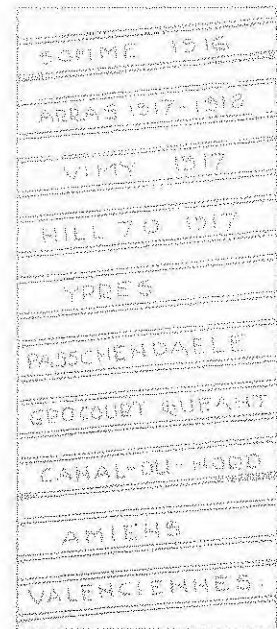 SOMME 1916
ARRAS 1917-1918
VIMY 1917
HILL 70 1917
YPRES
PASSCHENDAELE
DROCOURT QUEANT
CANAL-DU-NORD
AMIENS
VALENCIENNES.